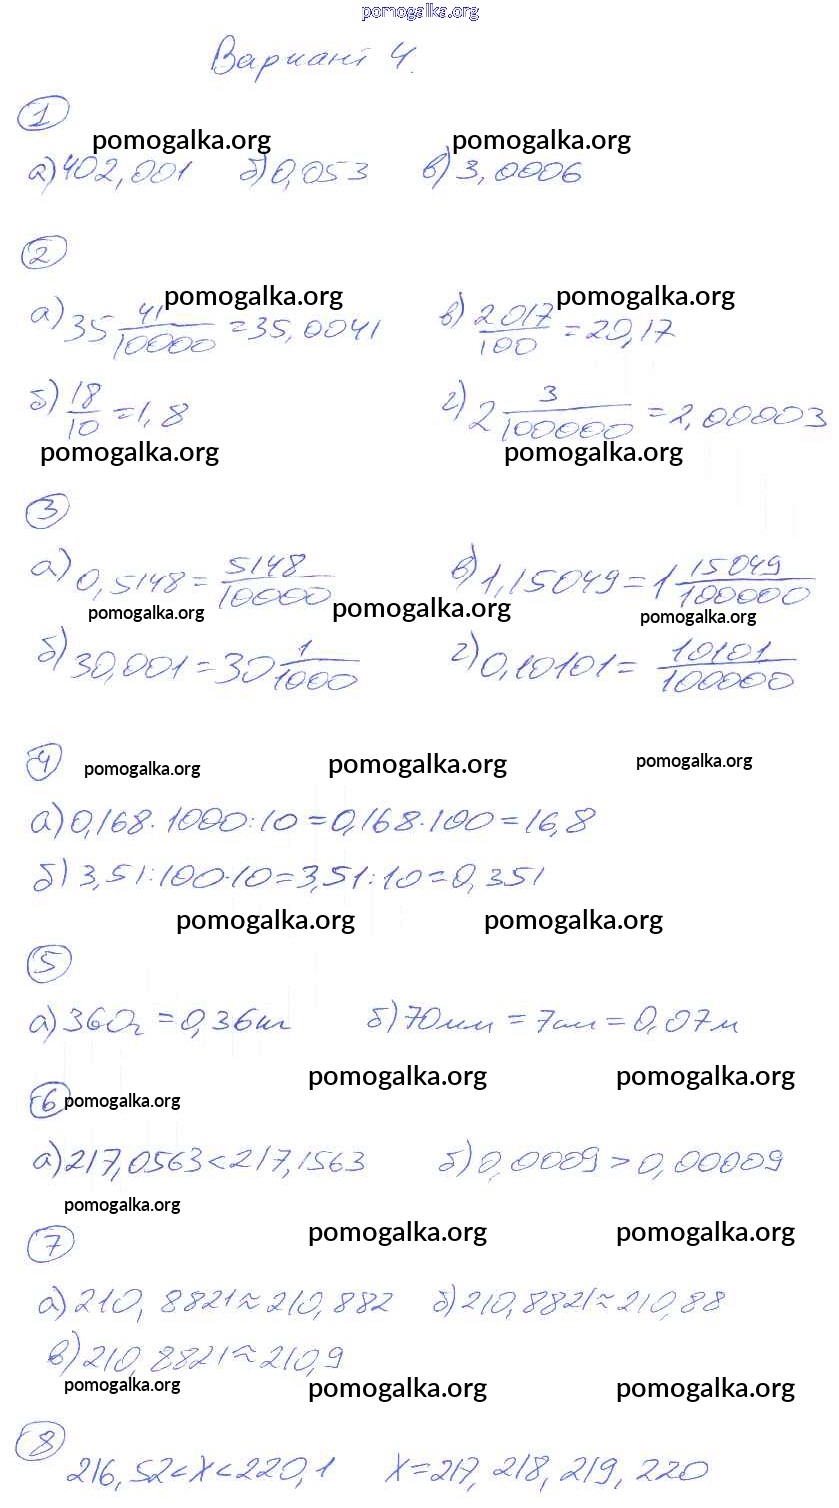 pomogalka.org
Вариант 4.
1
pomogalka.org pomogalka.org
а) 402,001 б) 0,053 в) 3,0006
2
pomogalka.org pomogalka.org
а) 35 41/10000 = 35,0041 в) 2017/100 = 20,17
б) 18/10 = 1,8 г) 2 3/100000 = 2,00003
pomogalka.org pomogalka.org
3
а) 0,5148 = 5148/10000 в) 1,15049 = 1 15049/100000
pomogalka.org pomogalka.org pomogalka.org
б) 30,001 = 30 1/1000 г) 0,10101 = 10101/100000
4
pomogalka.org pomogalka.org pomogalka.org
а) 0,168·1000:10 = 0,168·100 = 16,8
б) 3,51:100·10 = 3,51:10 = 0,351
pomogalka.org pomogalka.org
5
а) 360г = 0,36кг б) 70мм = 7см = 0,07м
pomogalka.org pomogalka.org
6 pomogalka.org
а) 217,0563 < 217,1563 б) 0,0009 > 0,00009
pomogalka.org
7 pomogalka.org pomogalka.org
а) 210,8821 ≈ 210,882 б) 210,8821 ≈ 210,88
в) 210,8821 ≈ 210,9
pomogalka.org pomogalka.org pomogalka.org
8
216,52 < x < 220,1 x = 217, 218, 219, 220